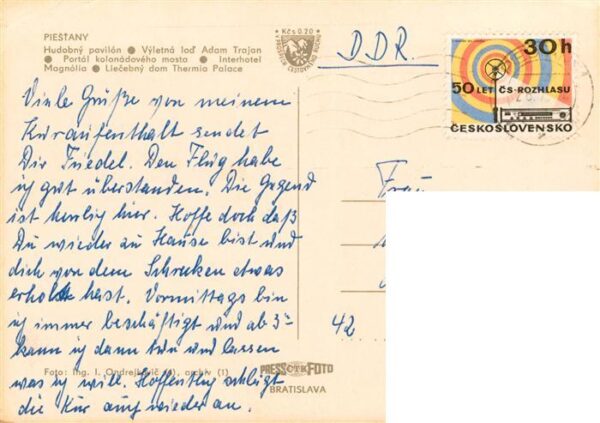 PIEŠŤANY
Hudobný pavilón ● Výletná loď Adam Trajan
● Portál kolonádového mosta ● Interhotel
Magnólia ● Liečebný dom Thermia Palace
Kčs 0.20
DDR.
30 h
50 LET ČS·ROZHLASU
ČESKOSLOVENSKO
Viele Grüße von meinem
Kuraufenthalt sendet
Dir Friedel. Den Flug habe
ich gut überstanden. Die Gegend
ist herrlich hier. Hoffe doch daß
Du wieder zu Hause bist und
dich von dem Schrecken etwas
erholt hast. Vormittags bin
ich immer beschäftigt und ab 3=
kann ich dann tun und lassen
was ich will. Hoffentlich schlägt
die Kur auch wieder an.
Frau
42
Foto: Ing. I. Ondrejkovič archív (1)
PRESSČTKFOTO
BRATISLAVA